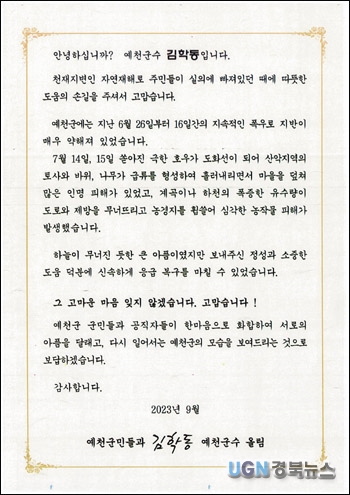 안녕하십니까? 예천군수 김학동입니다.
천재지변인 자연재해로 주민들이 실의에 빠져있던 때에 따뜻한
도움의 손길을 주셔서 고맙습니다.
예천군에는 지난 6월 26일부터 16일간의 지속적인 폭우로 지반이
매우 약해져 있었습니다.
7월 14일, 15일 쏟아진 극한 호우가 도화선이 되어 산악지역의
토사와 바위, 나무가 급류를 형성하여 흘러내리면서 마을을 덮쳐
많은 인명 피해가 있었고, 계곡이나 하천의 폭증한 유수량이
도로와 제방을 무너뜨리고 농경지를 휩쓸어 심각한 농작물 피해가
발생했습니다.
하늘이 무너진 듯한 큰 아픔이었지만 보내주신 정성과 소중한
도움 덕분에 신속하게 응급 복구를 마칠 수 있었습니다.
그 고마운 마음 잊지 않겠습니다. 고맙습니다 !
예천군 군민들과 공직자들이 한마음으로 화합하여 서로의
아픔을 달래고, 다시 일어서는 예천군의 모습을 보여드리는 것으로
보답하겠습니다.
감사합니다.
2023년 9월
예천군민들과 김학동 예천군수 올림
UGN 경북뉴스